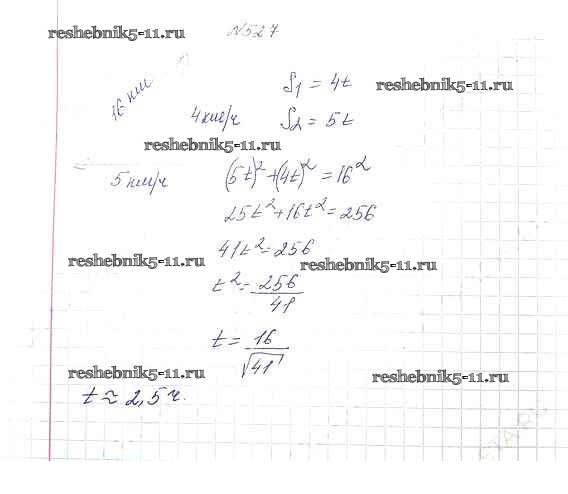 reshebnik5-11.ru
N527
16 км
S₁ = 4t
reshebnik5-11.ru
4км/ч
S₂ = 5t
reshebnik5-11.ru
5 км/ч
(5t)² + (4t)² = 16²
25t² + 16t² = 256
41t² = 256
reshebnik5-11.ru
reshebnik5-11.ru
t² = 256/41
t = 16/√41
reshebnik5-11.ru
reshebnik5-11.ru
t ≈ 2,5 ч.